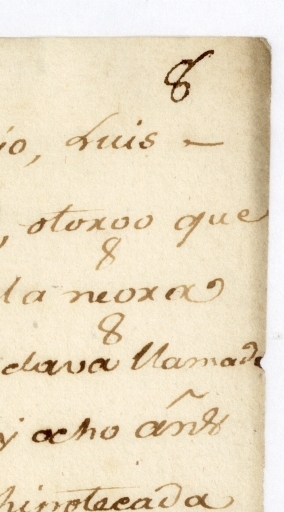 8
io, Luis -
, otorgo que
la negra
clava llamada
y ocho añs
hipotecada